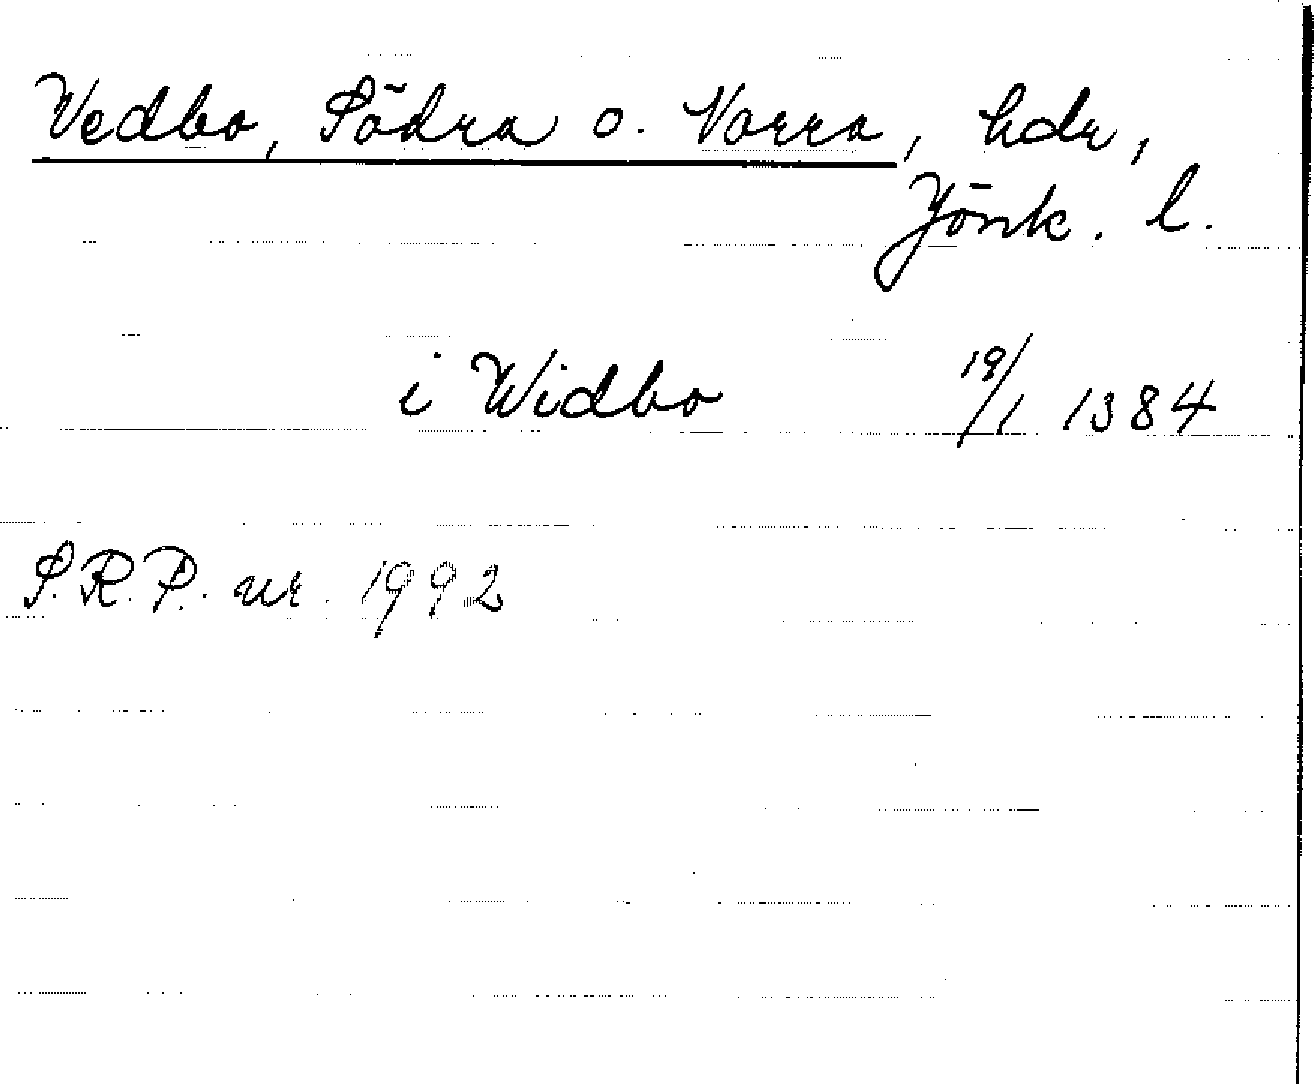 Vedbo, Södra o. Norra, hdr,
Jönk. l.
i Widbo 19/1 1384
S.R.P. nr. 1992